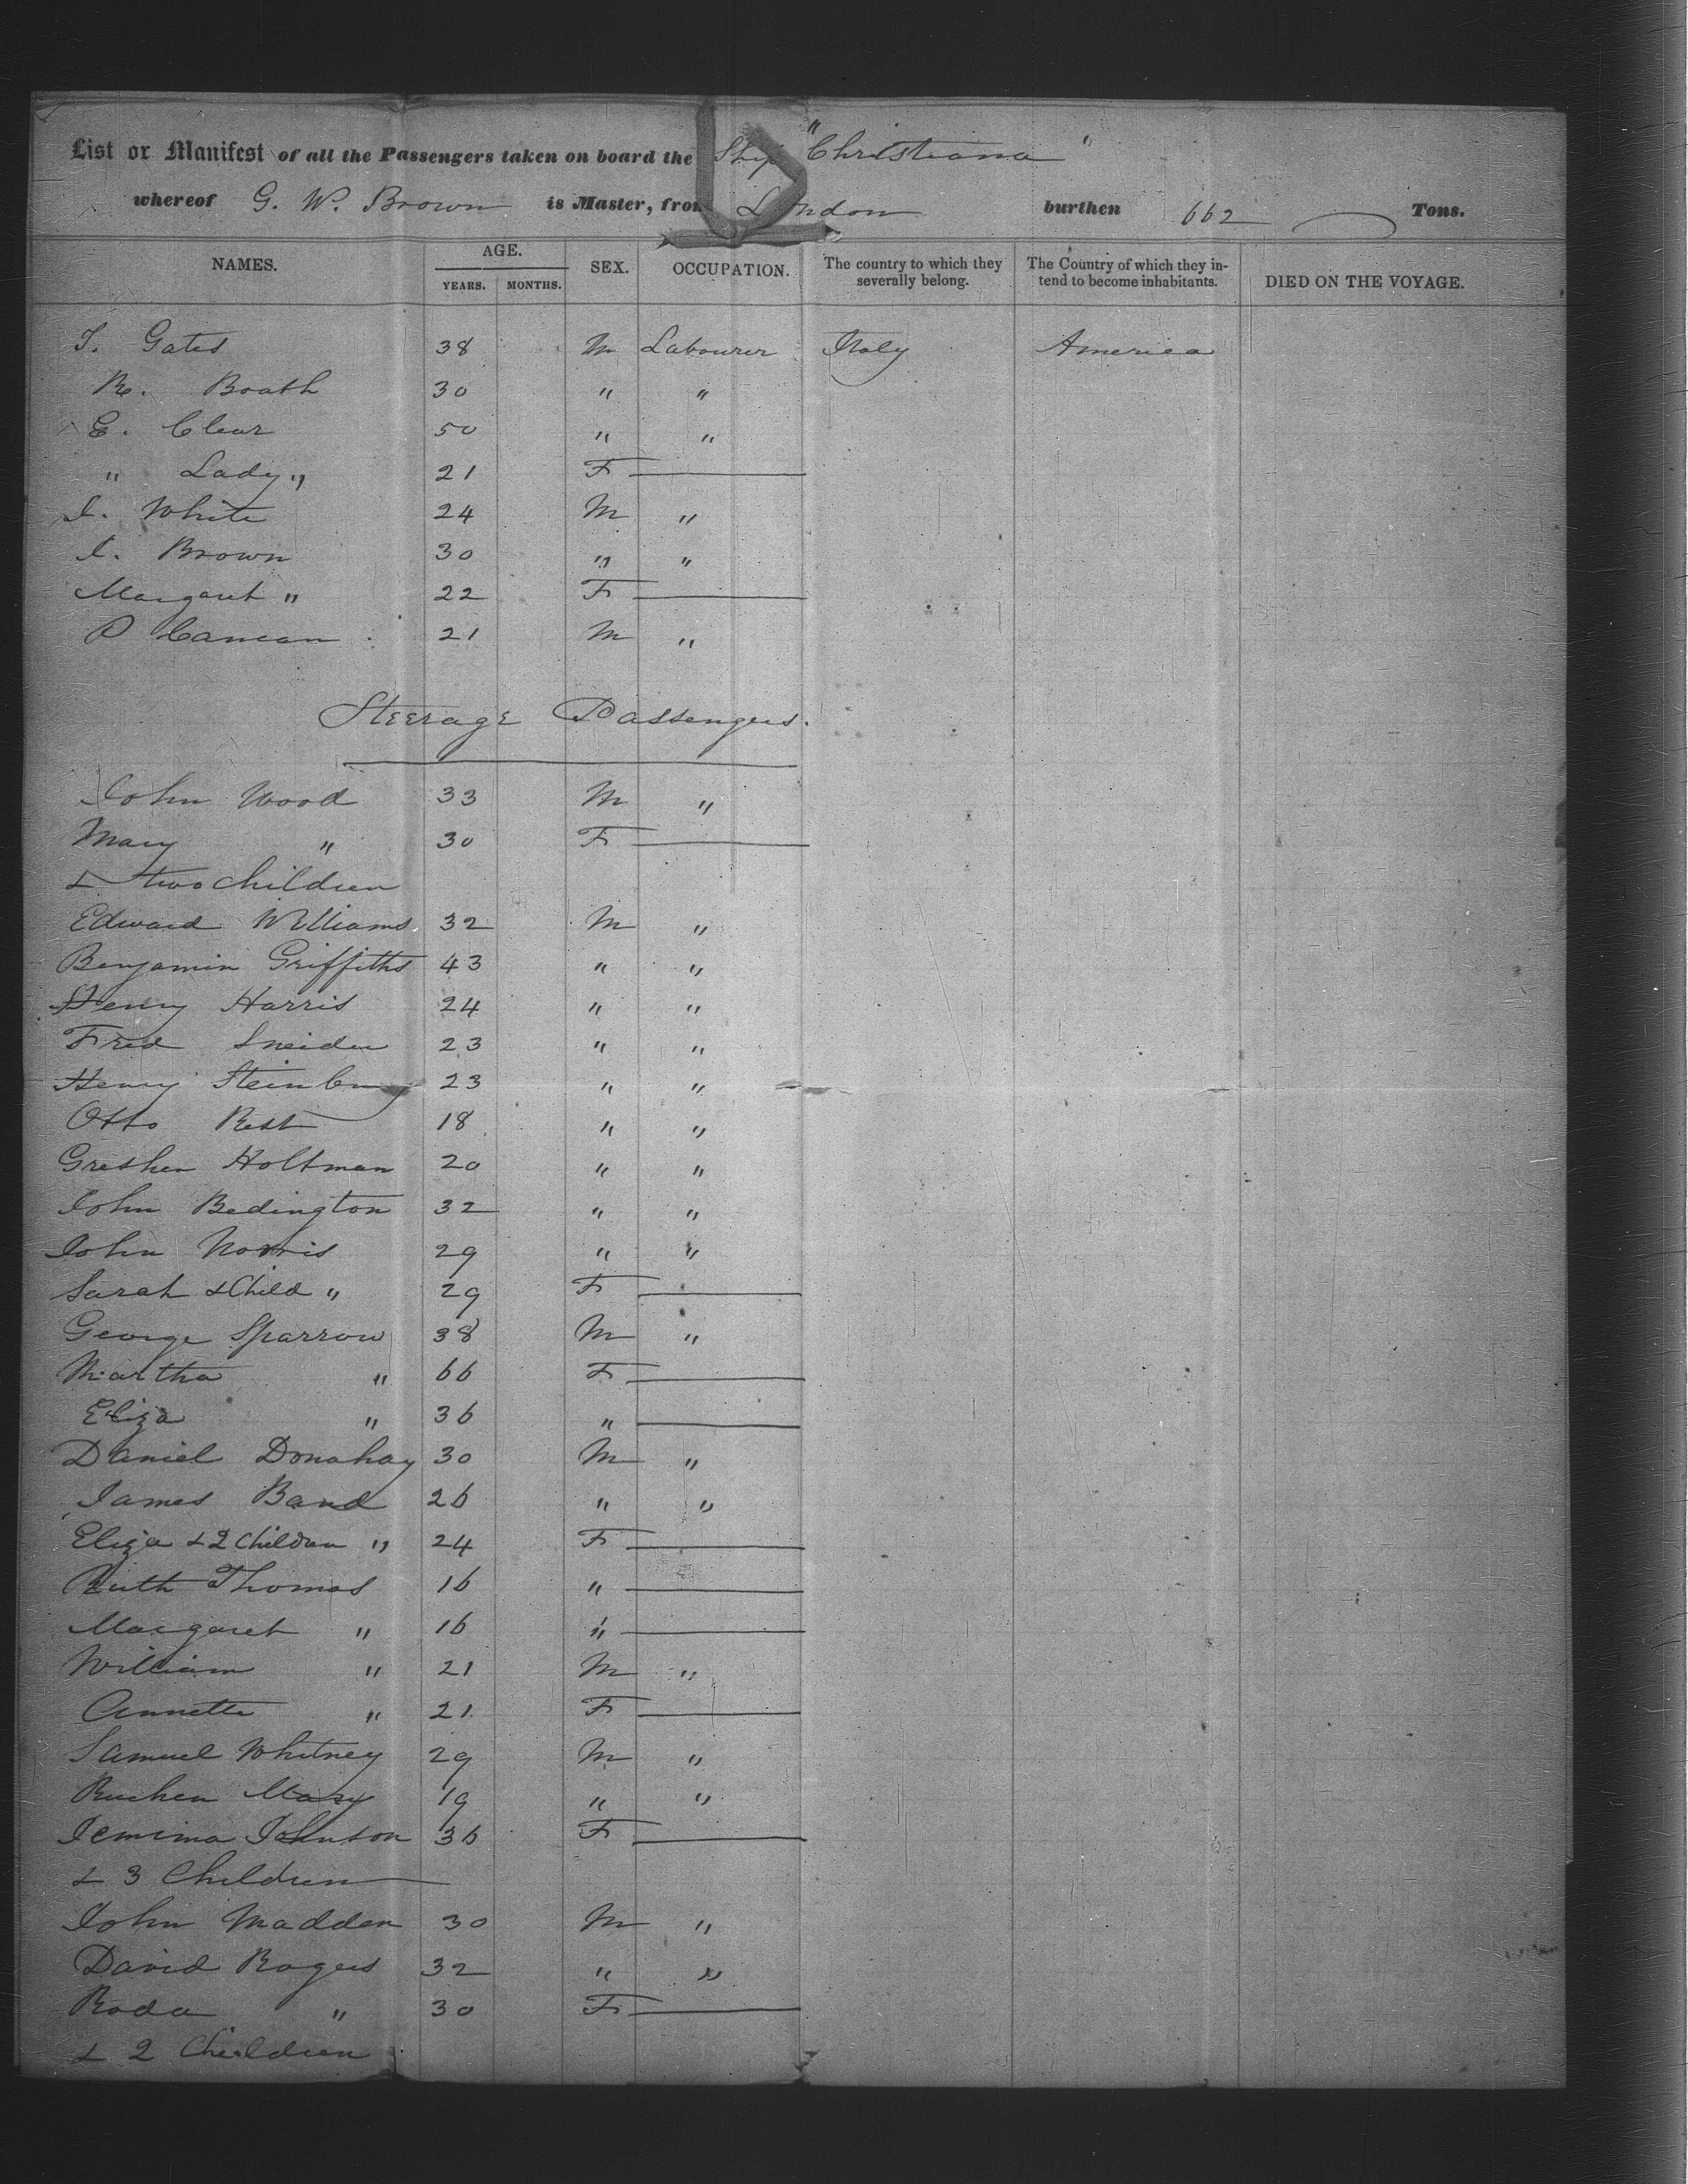 List or Manifest of all the Passengers taken on board the Ship "Christiana"
whereof G. W. Brown is Master, from London burthen 662 Tons.
NAMES. AGE. YEARS. MONTHS. SEX. OCCUPATION. The country to which they severally belong. The Country of which they intend to become inhabitants. DIED ON THE VOYAGE.
T. Gates 38 M Labourer Italy America
R. Boath 30 " "
E. Clear 50 " "
" Lady " 21 F
I. White 24 M "
I. Brown 30 " "
Margaret " 22 F
P 21 M "
Steerage Passengers.
John Wood 33 M "
Mary " 30 F
& two children
Edward Williams 32 M "
Benjamin Griffiths 43 " "
Henry Harris 24 " "
Fred Sneider 23 " "
Henry Steinburg 23 " "
Otto Rest 18 " "
Greshen Holtman 20 " "
John Bedington 32 " "
John Norris 29 " "
Sarah & Child " 29 F
George Sparrow 38 M "
Martha " 66 F
Eliza " 36 "
Daniel Donahay 30 M "
James Band 26 " "
Eliza & 2 Children " 24 F
Ruth Thomas 16 "
Margaret " 16 "
William " 21 M "
Annette " 21 F
Samuel Whitney 29 M "
Mary 19 " "
Jemima Johnson 36 F
& 3 Children
John Madden 30 M "
David Rogers 32 " "
Roda " 30 F
& 2 Children